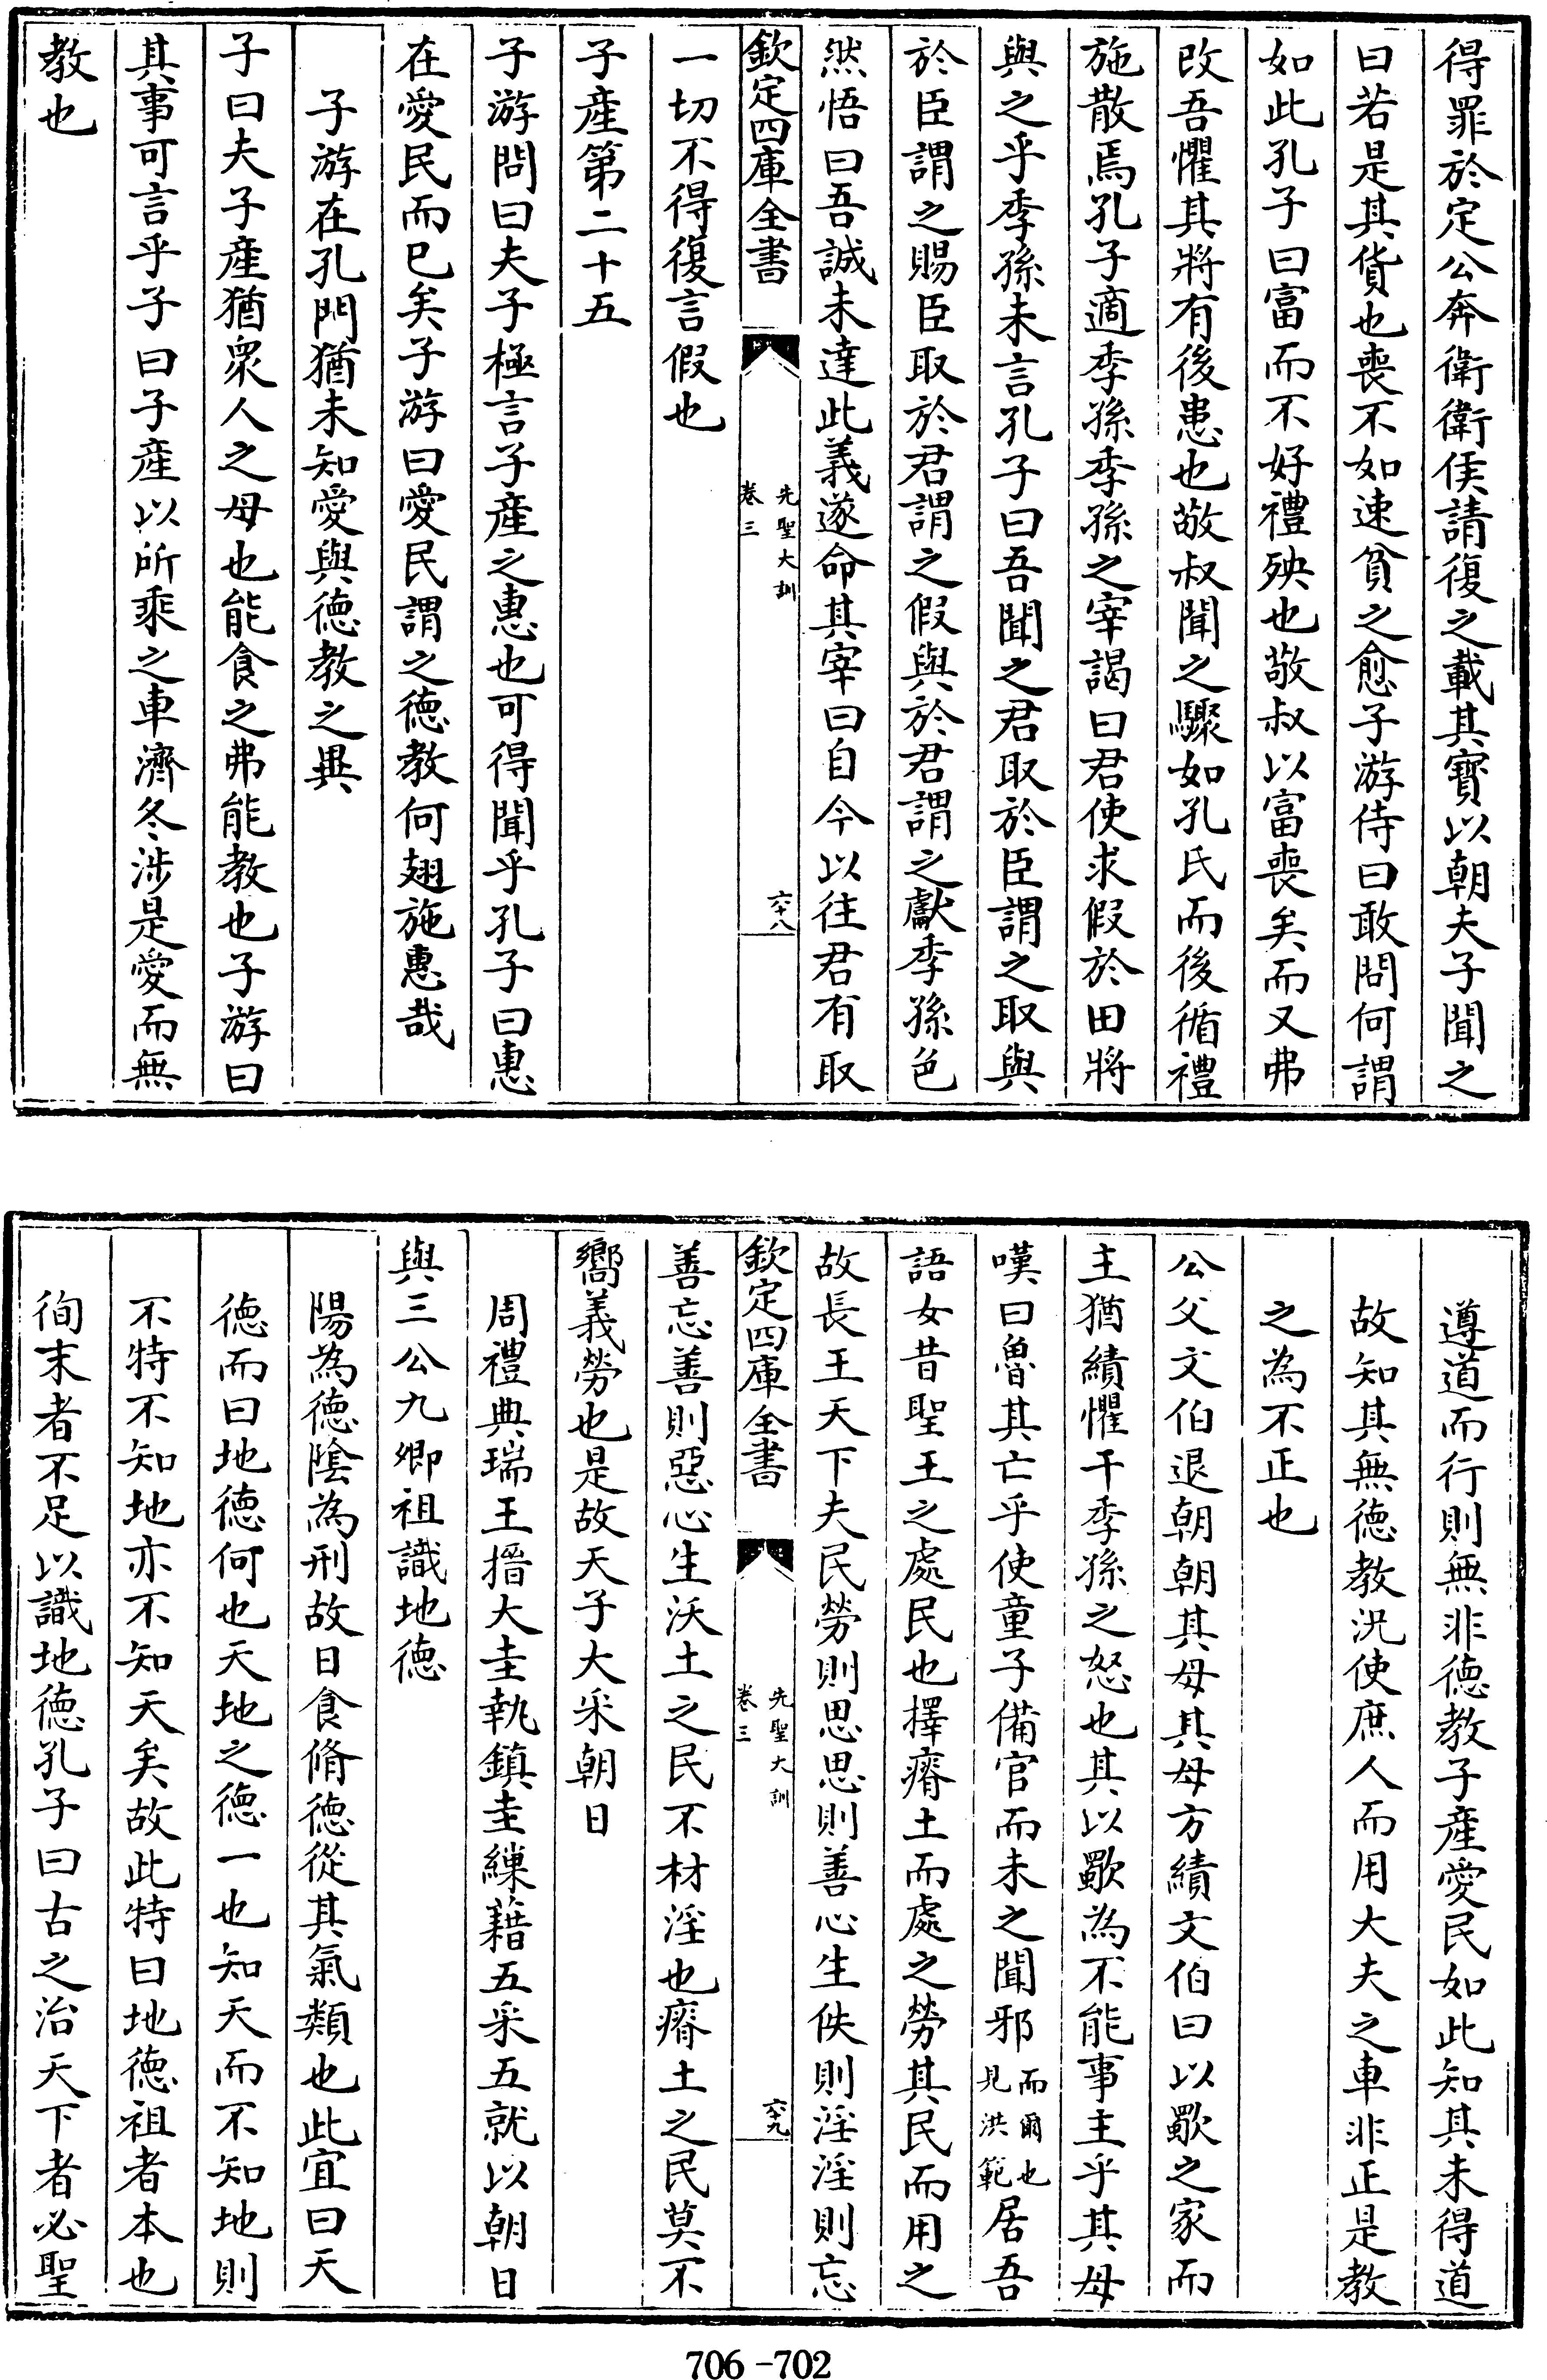 得罪於定公奔衛衛侯請復之載其寳以朝夫子聞之
曰若是其貨也喪不如速貧之愈子游侍曰敢問何謂
如此孔子曰富而不好禮殃也敬叔以富喪矣而又弗
改吾懼其將有後患也敬叔聞之驟如孔氏而後循禮
施散焉孔子適季孫季孫之宰謁曰君使求假於田將
與之乎季孫未言孔子曰吾聞之君取於臣謂之取與
於臣謂之賜臣取於君謂之假與於君謂之獻季孫色
然悟曰吾誠未達此義遂命其宰曰自今以往君有取
欽定四庫全書
先聖大訓
卷三
六十八
一切不得復言假也
子産第二十五
子游問曰夫子極言子産之惠也可得聞乎孔子曰惠
在愛民而已矣子游曰愛民謂之德教何翅施惠哉
子游在孔門猶未知愛與德教之異
子曰夫子産猶衆人之母也能食之弗能教也子游曰
其事可言乎子曰子産以所乘之車濟冬涉是愛而無
教也
遵道而行則無非德教子産愛民如此知其未得道
故知其無德教況使庶人而用大夫之車非正是教
之為不正也
公父文伯退朝朝其母其母方績文伯曰以歜之家而
主猶績懼干季孫之怒也其以歜為不能事主乎其母
嘆曰魯其亡乎使童子備官而未之聞邪而爾也見洪範居吾
語女昔聖王之處民也擇瘠土而處之勞其民而用之
故長王天下夫民勞則思思則善心生佚則淫淫則忘
欽定四庫全書
先聖大訓
卷三
六十九
善忘善則惡心生沃土之民不材淫也瘠土之民莫不
嚮義勞也是故天子大采朝日
周禮典瑞王搢大圭執鎮圭繅藉五采五就以朝日
與三公九卿祖識地德
陽為德陰為刑故日食脩德從其氣類也此宜曰天
德而曰地德何也天地之德一也知天而不知地則
不特不知地亦不知天矣故此特曰地德祖者本也
徇末者不足以識地德孔子曰古之治天下者必聖
706-702